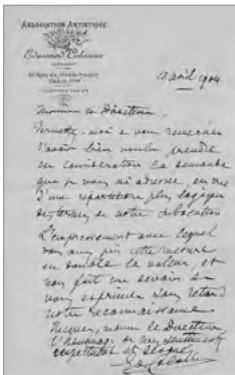 ASSOCIATION ARTISTIQUE
Edouard Colonne
13 avril 1904
Monsieur le Directeur
Permettez-moi de vous remercier
d'avoir bien voulu prendre
en considération la demande
que je vous ai adressée, en vue
d'une répartition plus logique
de notre allocation
L'empressement avec lequel
vous avez pris cette mesure
en double la valeur, et
nous fait un devoir de
vous exprimer sans retard
notre reconnaissance.
Monsieur le Directeur
l'hommage de mes sentiments
respectueux et
Ed. Colonne